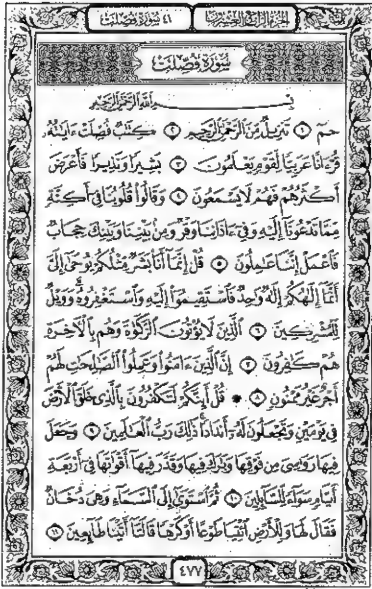 الجزء الرابع والعشرون
٤١ سورة فصلت
سورة فصلت
بسم الله الرحمن الرحيم
حمٓ ١ تَنزِيلٌ مِّنَ ٱلرَّحْمَٰنِ ٱلرَّحِيمِ ٢ كِتَٰبٌ فُصِّلَتْ ءَايَٰتُهُۥ
قُرْءَانًا عَرَبِيًّا لِّقَوْمٍ يَعْلَمُونَ ٣ بَشِيرًا وَنَذِيرًا فَأَعْرَضَ
أَكْثَرُهُمْ فَهُمْ لَا يَسْمَعُونَ ٤ وَقَالُوا۟ قُلُوبُنَا فِىٓ أَكِنَّةٍ
مِّمَّا تَدْعُونَآ إِلَيْهِ وَفِىٓ ءَاذَانِنَا وَقْرٌ وَمِنۢ بَيْنِنَا وَبَيْنِكَ حِجَابٌ
فَٱعْمَلْ إِنَّنَا عَٰمِلُونَ ٥ قُلْ إِنَّمَآ أَنَا۠ بَشَرٌ مِّثْلُكُمْ يُوحَىٰٓ إِلَىَّ
أَنَّمَآ إِلَٰهُكُمْ إِلَٰهٌ وَٰحِدٌ فَٱسْتَقِيمُوٓا۟ إِلَيْهِ وَٱسْتَغْفِرُوهُ وَوَيْلٌ
لِّلْمُشْرِكِينَ ٦ ٱلَّذِينَ لَا يُؤْتُونَ ٱلزَّكَوٰةَ وَهُم بِٱلْـَٔاخِرَةِ
هُمْ كَٰفِرُونَ ٧ إِنَّ ٱلَّذِينَ ءَامَنُوا۟ وَعَمِلُوا۟ ٱلصَّٰلِحَٰتِ لَهُمْ
أَجْرٌ غَيْرُ مَمْنُونٍ ٨ ۞ قُلْ أَئِنَّكُمْ لَتَكْفُرُونَ بِٱلَّذِى خَلَقَ ٱلْأَرْضَ
فِى يَوْمَيْنِ وَتَجْعَلُونَ لَهُۥٓ أَندَادًا ذَٰلِكَ رَبُّ ٱلْعَٰلَمِينَ ٩ وَجَعَلَ
فِيهَا رَوَٰسِىَ مِن فَوْقِهَا وَبَٰرَكَ فِيهَا وَقَدَّرَ فِيهَآ أَقْوَٰتَهَا فِىٓ أَرْبَعَةِ
أَيَّامٍ سَوَآءً لِّلسَّآئِلِينَ ١٠ ثُمَّ ٱسْتَوَىٰٓ إِلَى ٱلسَّمَآءِ وَهِىَ دُخَانٌ
فَقَالَ لَهَا وَلِلْأَرْضِ ٱئْتِيَا طَوْعًا أَوْ كَرْهًا قَالَتَآ أَتَيْنَا طَآئِعِينَ ١١
٤٧٧